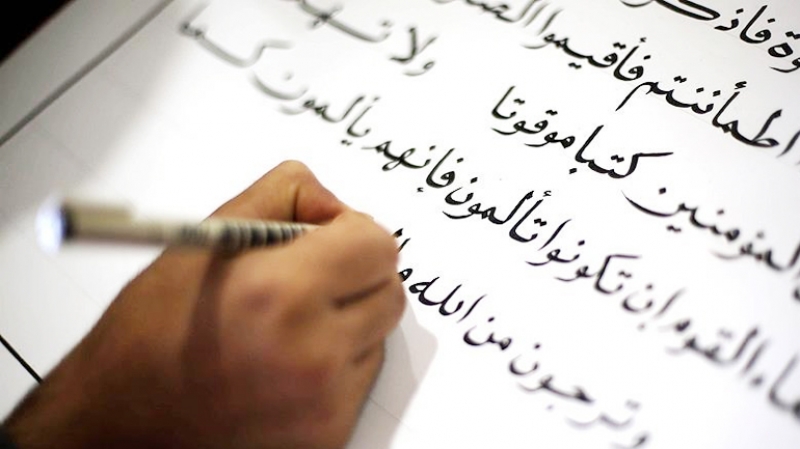 فاذكر
اطمأننتم فأقيموا الصلو
المؤمنين كتبا موقوتا ولا تهنو
القوم إن تكونوا تألمون فإنهم يألمون كما
وترجون من الله ما